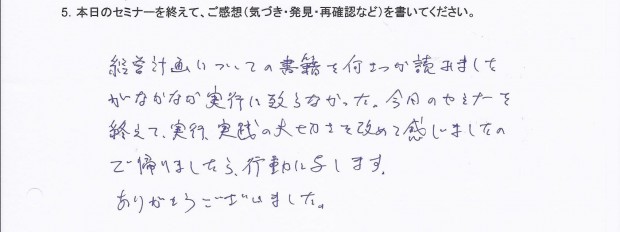 5. 本日のセミナーを終えて、ご感想(気づき・発見・再確認など)を書いてください。
経営計画についての書籍を何さつか読みました
がなかなか実行に致らなかった。今回のセミナーを
終えて、実行、実践の大切さを改めて感じましたの
で帰りましたら、行動に移します。
ありがとうございました。